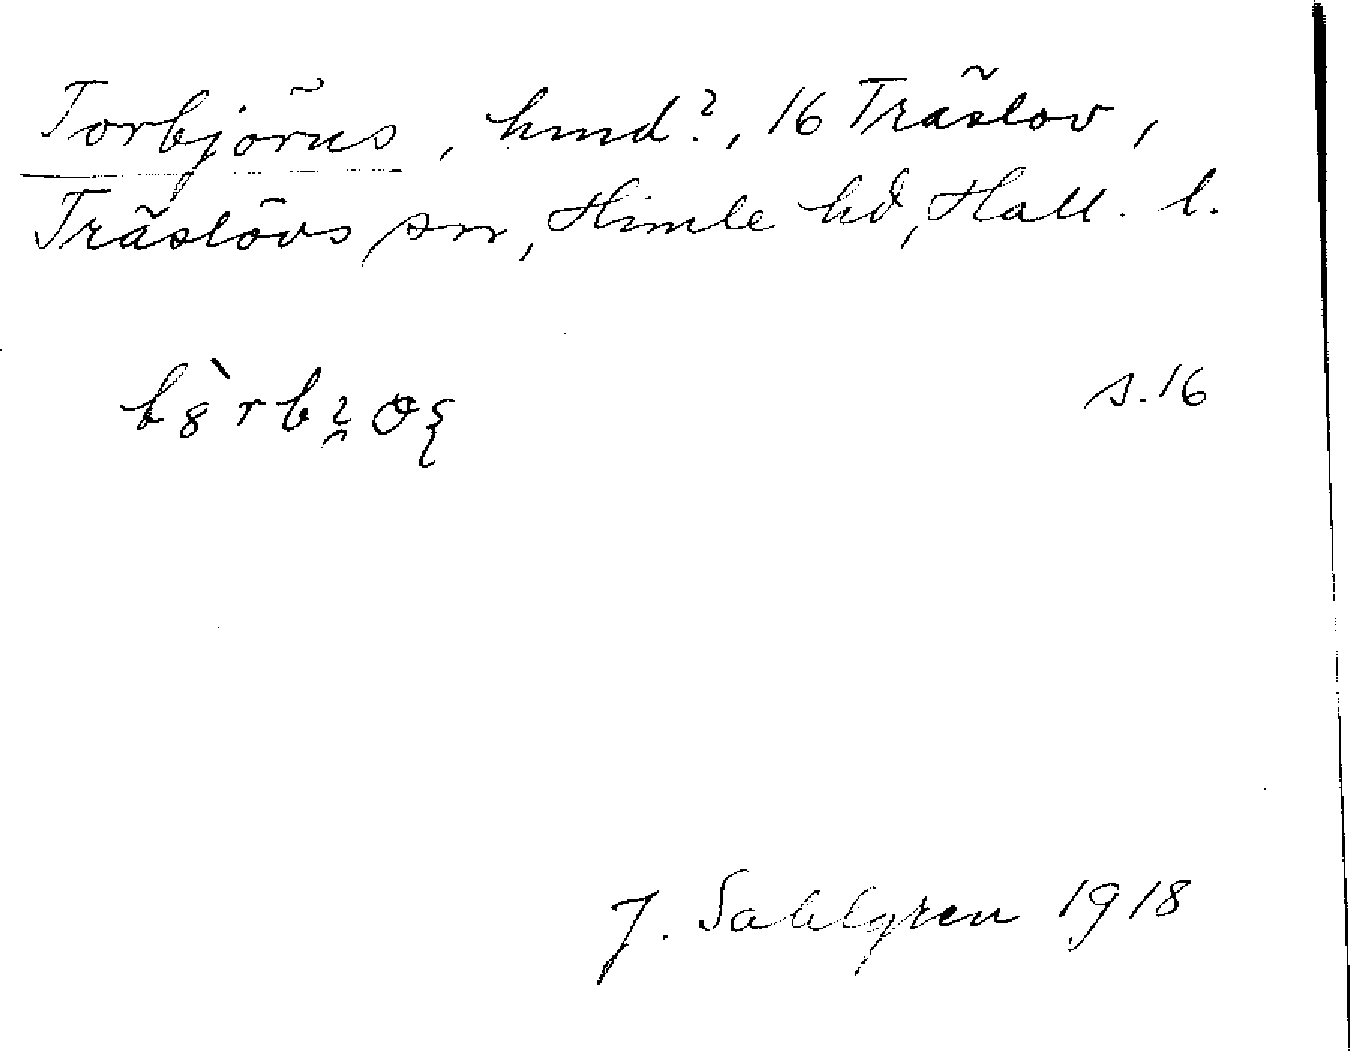 Torbjörns, hmd?, 16 Träslöv,
Träslövs sn, Himle hd, Hall. l.
s.16
J. Sahlgren 1918